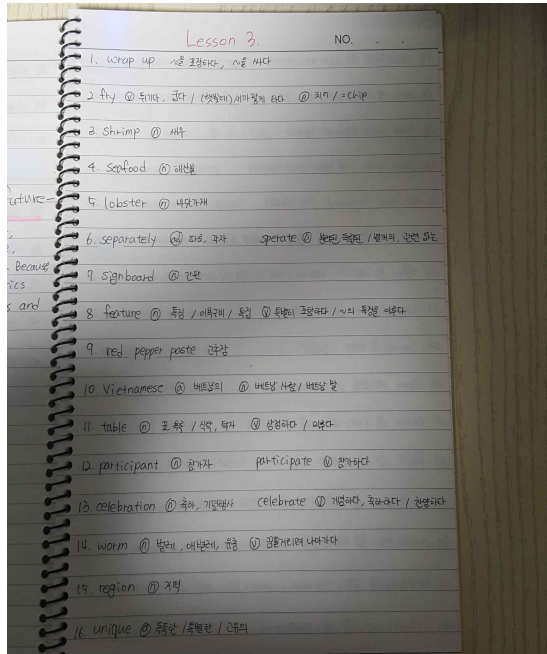 uture-
Because
ics
s and
Lesson 3. NO. . .
1. wrap up ~을 포장하다, ~을 싸다
2. fry ⓥ 튀기다, 굽다 / (햇빛에) 새까맣게 타다 ⓝ 치어 / =chip
3. shrimp ⓝ 새우
4. seafood ⓝ 해산물
5. lobster ⓝ 바닷가재
6. separately ⓐd 따로, 각자 sperate ⓐ 분리된, 독립된 / 별개의, 관련 없는
7. signboard ⓝ 간판
8. feature ⓝ 특징 / 이목구비 / 특집 ⓥ 특별히 포함하다 / ~의 특징을 이루다
9. red pepper paste 고추장
10. Vietnamese ⓐ 베트남의 ⓝ 베트남 사람 / 베트남 말
11. table ⓝ 표 목록 / 식탁, 탁자 ⓥ 상정하다 / 미루다
12. participant ⓝ 참가자 participate ⓥ 참가하다
13. celebration ⓝ 축하, 기념행사 celebrate ⓥ 기념하다, 축하하다 / 찬양하다
14. worm ⓝ 벌레, 애벌레, 유충 ⓥ 꿈틀거리며 나아가다
15. region ⓝ 지역
16. unique ⓐ 독특한 / 특별한 / 고유의